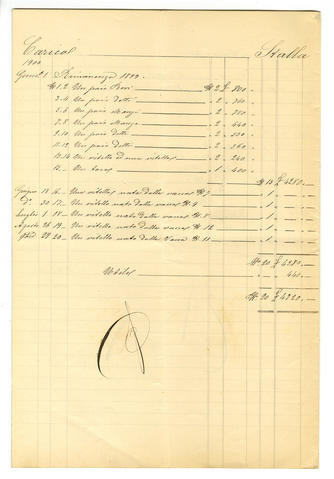 Carico Stalla
1900
Genn. 1 Rimanenza 1899.
N 1.2 Un paio Bovi N 2 £ 800
3.4 Un paio detti " 2 " 760
5.6 Un paio Manzi " 2 " 750
7.8 Un paio Manze " 2 " 440
9.10 Un paio dette " 2 "
11.12 Un paio dette " 2 "
13.14 Un vitello ed una vitella " 2 " 240
15 Un toro " 1 " 400
N 15 £ 4280
Giugno 18 16 Una vitella nata dalla vacca N " 1
D. 30 17 Un vitello nato dalla vacca N 9 " 1
Luglio 1 18 Un vitello nato dalla vacca N 8 " 1
Agosto 26 19 Un vitello nato dalla vacca N 12 " 1
28 20 Un vitello nato dalla Vacca N 11 " 1
N 20 £ 4280
Utile " " 440
N 20 £ 4720